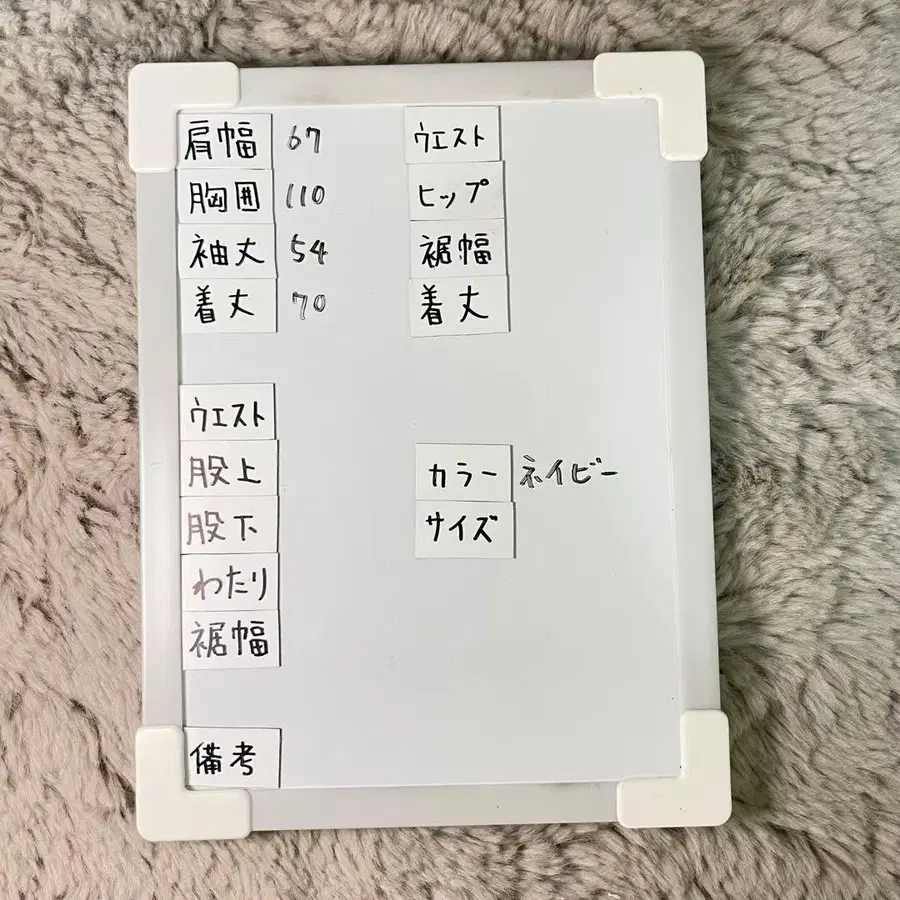 肩幅 67
胸囲 110
袖丈 54
着丈 70
ウエスト
ヒップ
裾幅
着丈
ウエスト
股上
股下
わたり
裾幅
カラー ネイビー
サイズ
備考